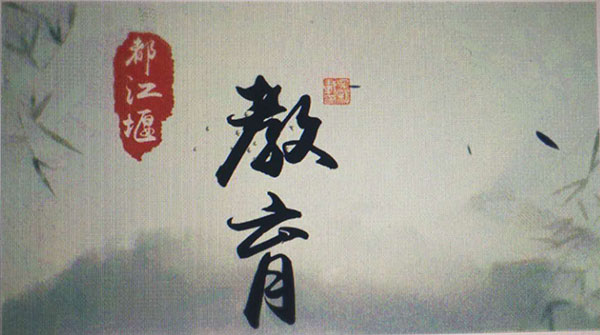 都江堰
教育